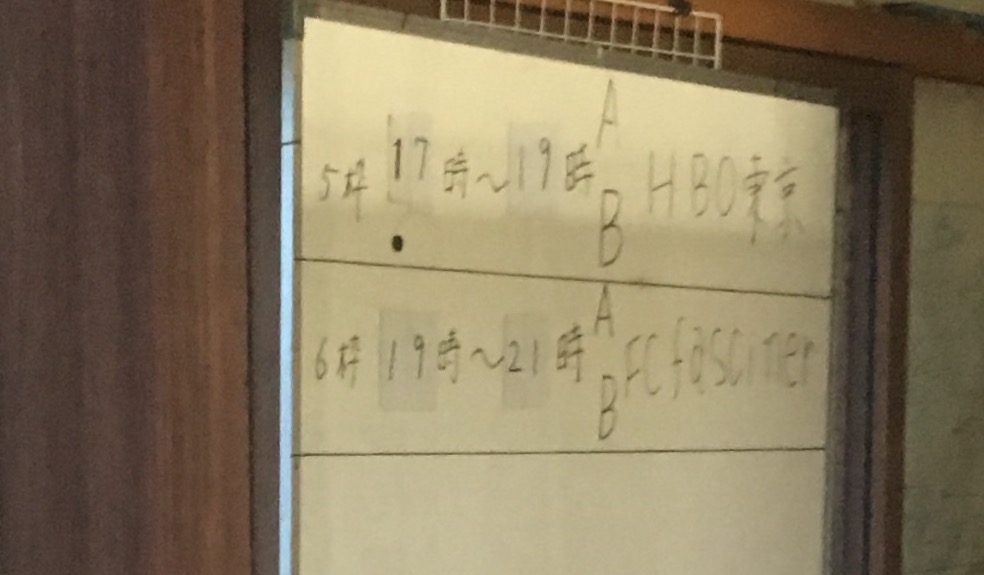 5枠 17時〜19時 A B HBO東京
6枠 19時〜21時 A B FC fasciner